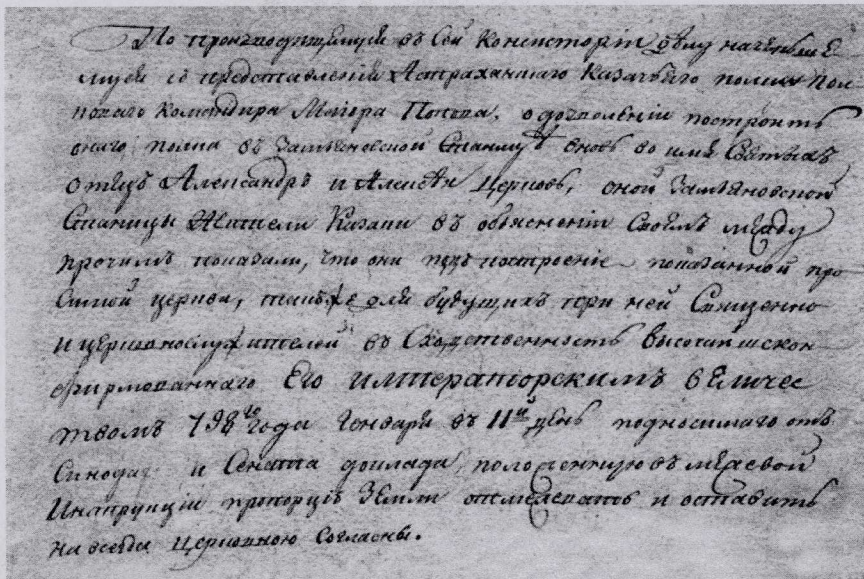 По произходящему въ Сей Консисторiи дѣлу начевшемѹ
ся съ представленiя Астраханскаго Казачьего полка пол
коваго Командира Маiора Попова, о дозволенiи построить
онаго полка въ Замьяновской Станицѣ вновь во имя Святыхъ
отецъ Александръ и Алексѣя церковь, оной Замьяновской
Станицы Жители Казаки въ объясненiи Своемъ между
прочимъ показали, что они подъ построенiе показанной про
симой церкви, такъ же для будущихъ при ней Священно
и церковнослужителей въ Сходственность высочайше скон
фирмованнаго Его императорскимъ величес
твомъ 798го года Генваря въ 11й день подносимаго отъ
Синода и Сената доклада, положенную въ межевой
Инструкцiи пропорцiю Земли отмежевать и оставить
на всегда церковною Согласны.